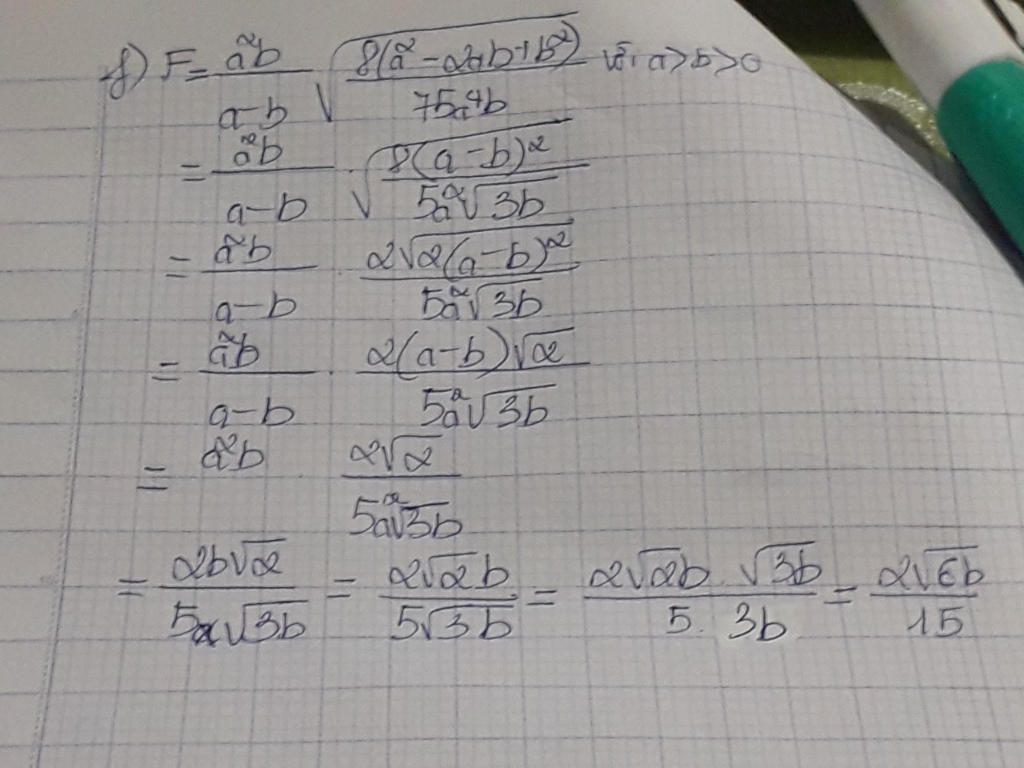 f) F = \frac{a²b}{a-b} \sqrt{\frac{8(a²-2ab+b²)}{75a⁴b}} với a>b>0
= \frac{a²b}{a-b} \cdot \sqrt{\frac{8(a-b)²}{5a²\sqrt{3b}}}
= \frac{a²b}{a-b} \cdot \frac{2\sqrt{2(a-b)²}}{5a²\sqrt{3b}}
= \frac{a²b}{a-b} \cdot \frac{2(a-b)\sqrt{2}}{5a²\sqrt{3b}}
= a²b \frac{2\sqrt{2}}{5a²\sqrt{3b}}
= \frac{2b\sqrt{2}}{5\sqrt{3b}} = \frac{2\sqrt{2}b}{5\sqrt{3b}} = \frac{2\sqrt{2}b \cdot \sqrt{3b}}{5 \cdot 3b} = \frac{2\sqrt{6b}}{15}